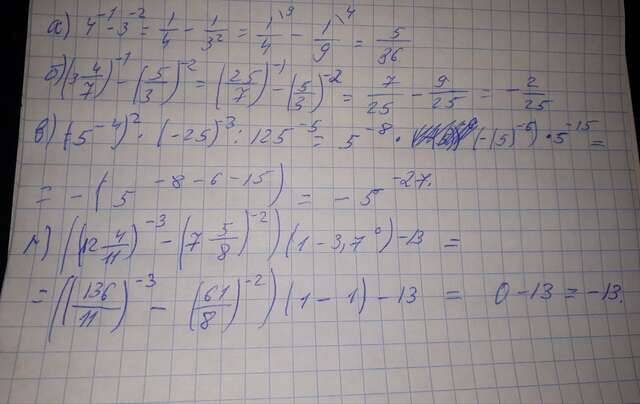 а) 4⁻¹ - 3⁻² = 1/4 - 1/3² = 1\⁹/4 - 1\⁴/9 = 5/36
б) (3 4/7)⁻¹ - (5/3)⁻² = (25/7)⁻¹ - (5/3)⁻² = 7/25 - 9/25 = -2/25
в) (-5⁻⁴)² · (-25)⁻³ : 125⁻⁵ = 5⁻⁸ · (-(5)⁻⁶) · 5⁻¹⁵ =
= -(5⁻⁸⁻⁶⁻¹⁵) = -5⁻²⁷.
г) ((12 4/11)⁻³ - (7 5/8)⁻²)(1 - 3,7⁰) - 13 =
= ((136/11)⁻³ - (61/8)⁻²)(1 - 1) - 13 = 0 - 13 = -13.